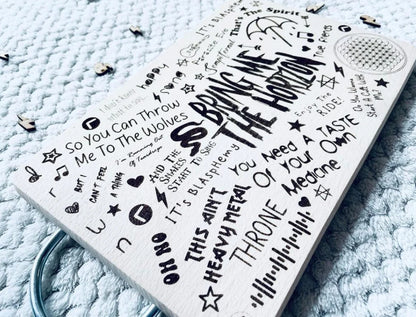 It's Blasphemy
That's The Spirit
Parasite Eve
happy
song
BRING ME
THE HORIZON
So You Can Throw
Me To The Wolves
Enjoy the
RIDE!
I'm Running Out
BUT I
CAN'T FEEL
A THING
AND THE
SNAKES
START TO SING
It's Blasphemy
You Need A TASTE
Of Your Own
Medicine
THIS AIN'T
HEAVY METAL
THRONE
OH NO